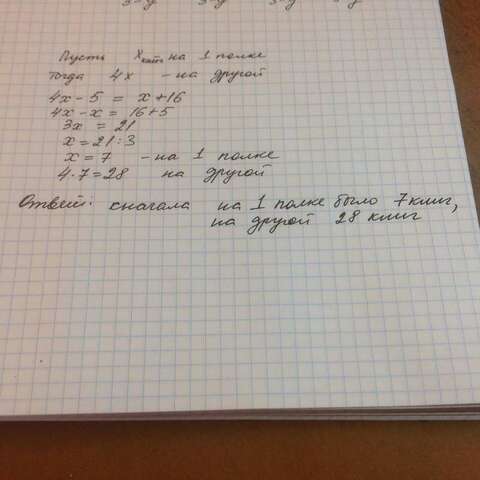 Пусть x книг на 1 полке
тогда 4x - на другой
4x - 5 = x + 16
4x - x = 16 + 5
3x = 21
x = 21 : 3
x = 7 - на 1 полке
4 · 7 = 28 на другой
Ответ: сначала на 1 полке было 7 книг,
на другой 28 книг